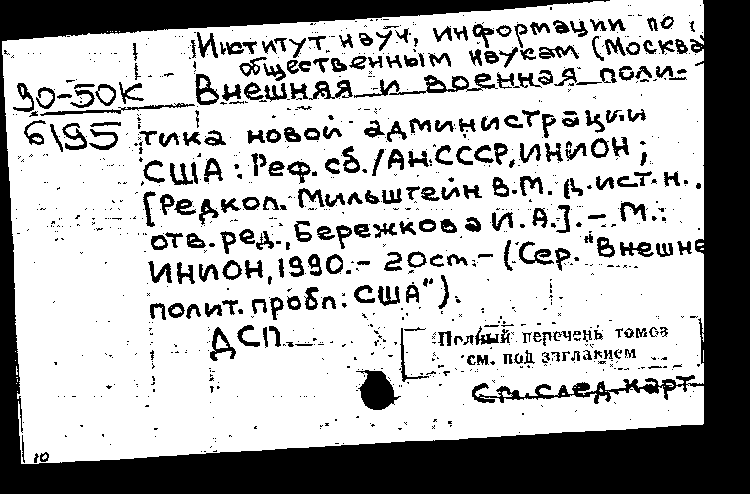 Институт науч. информации по
общественным наукам (Москва)
90-50К Внешняя и военная поли-
6195 тика новой администрации
США: Реф. сб./АН СССР, ИНИОН;
[Редкол. Мильштейн В.М. д.ист.н.
отв. ред., Бережкова И.А.]. – М.:
ИНИОН, 1990. – 20 см. – (Сер. "Внешне
полит. пробл. США").
ДСП
Полный перечень томов
см. под заглавием
См. след. карт
10